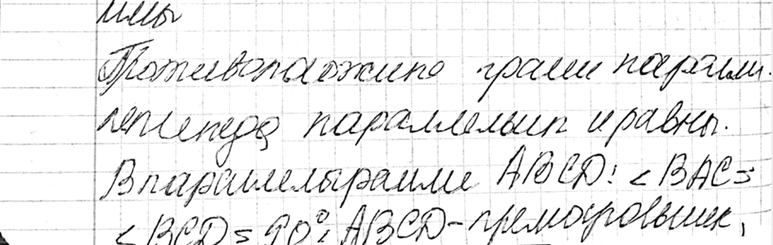 имы
Противоположные грани паралле-
лепипеда параллельны и равны.
В параллелограмме ABCD: <BAC=
<BCD=90°; ABCD-прямоугольник,